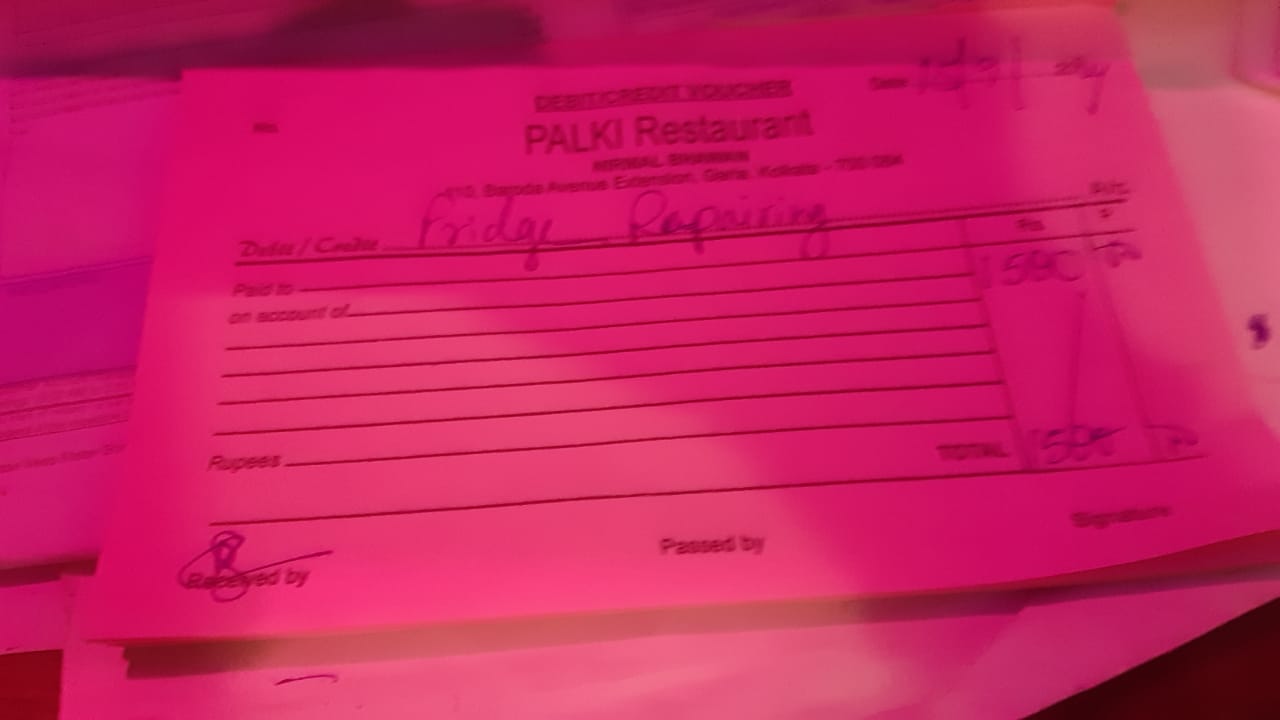 DEBIT/CREDIT VOUCHER
No.
Date
PALKI Restaurant
NIRMAL BHAWAN
Baroda Avenue Extension, Garia, Kolkata - 700 084
Debit / Credit Fridge Repairing A/c.
Rs. P.
Paid to 1500
on account of
Rupees
TOTAL 1500
Signature
Passed by
Received by